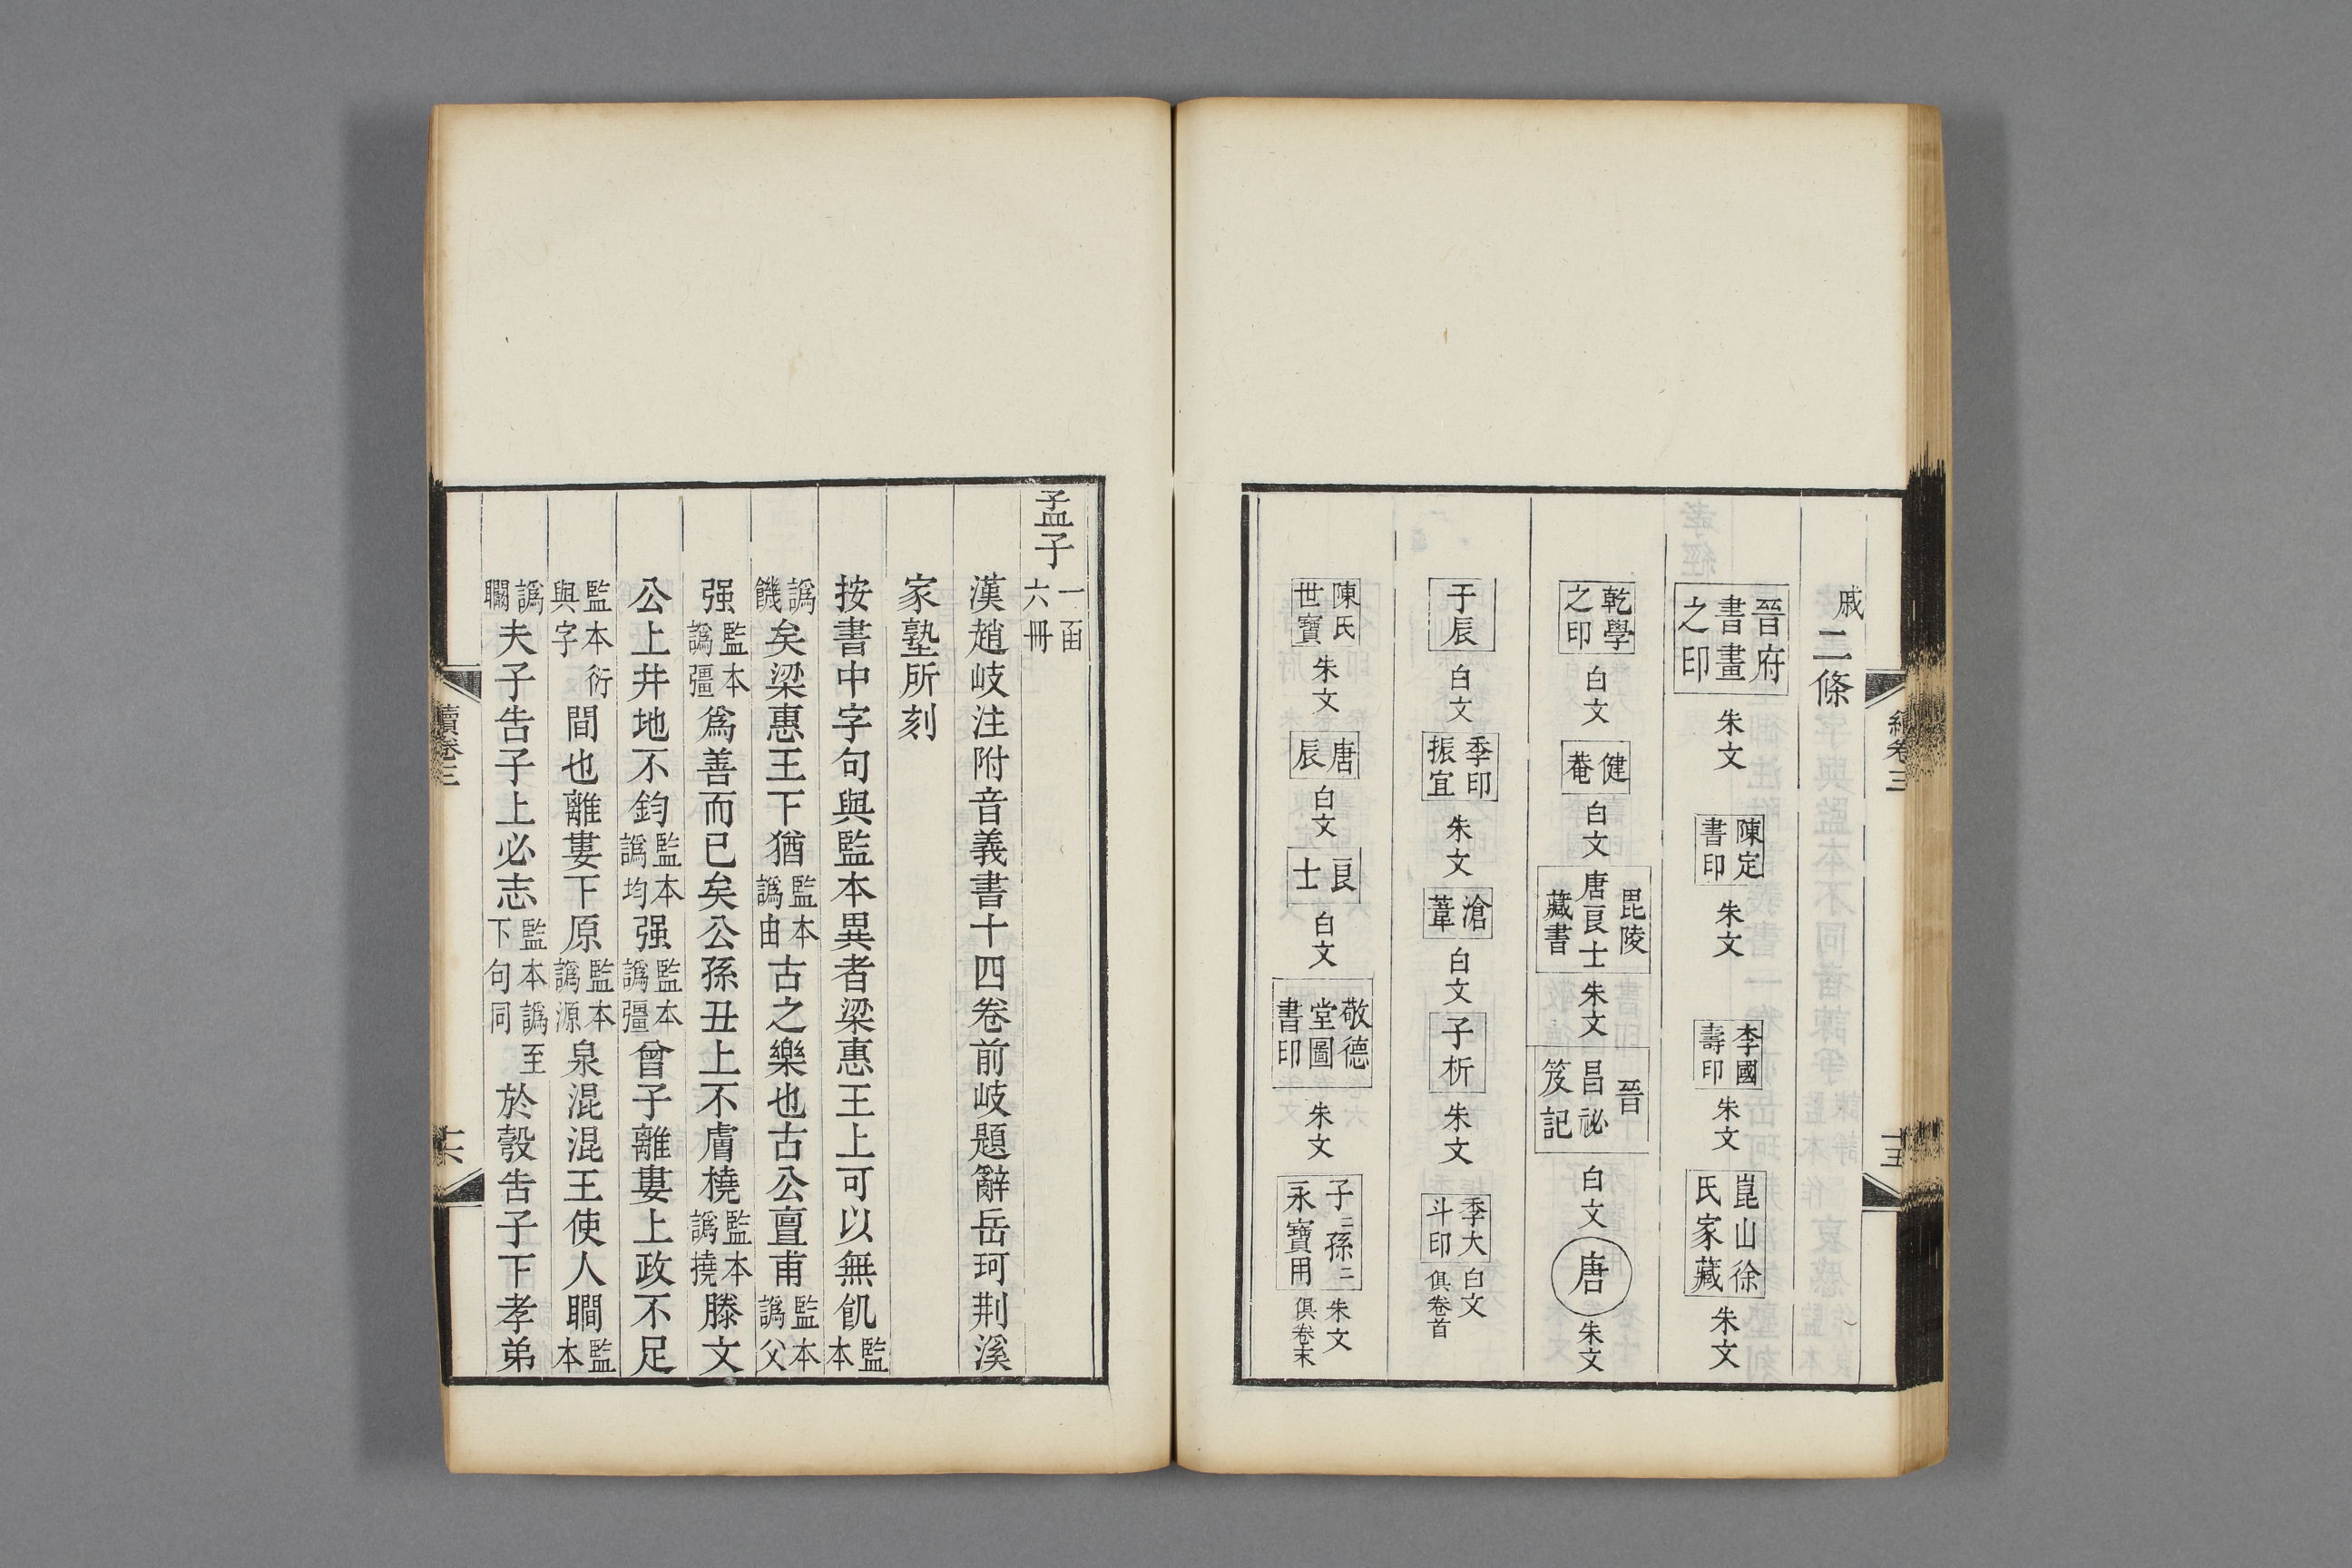 戚二條
晉府書畫之印 朱文 陳定書印 朱文 李國壽印 朱文 崑山徐氏家藏 朱文
乾學之印 白文 健菴 白文 毘陵唐良士藏書 朱文 晉昌祕笈記 白文 唐 朱文
于辰 白文 季印振宜 朱文 滄葦 白文 子析 朱文 季大斗印 白文 俱卷首
陳氏世寶 朱文 唐辰 白文 良士 白文 敬德堂圖書印 朱文 子二孫二永寶用 朱文 俱卷末
續卷三
十五
孟子 一函六冊
漢趙岐注附音義書十四卷前岐題辭岳珂荆溪
家塾所刻
按書中字句與監本異者梁惠王上可以無飢監本
譌饑矣梁惠王下猶監本譌由古之樂也古公亶甫監本譌父
强監本譌彊爲善而已矣公孫丑上不膚橈監本譌撓滕文
公上井地不鈞監本譌均强監本譌彊曾子離婁上政不足
監本衍與字間也離婁下原監本譌源泉混混王使人瞯監本
譌瞷夫子告子上必志監本譌至下句同於彀告子下孝弟
續卷三
十六